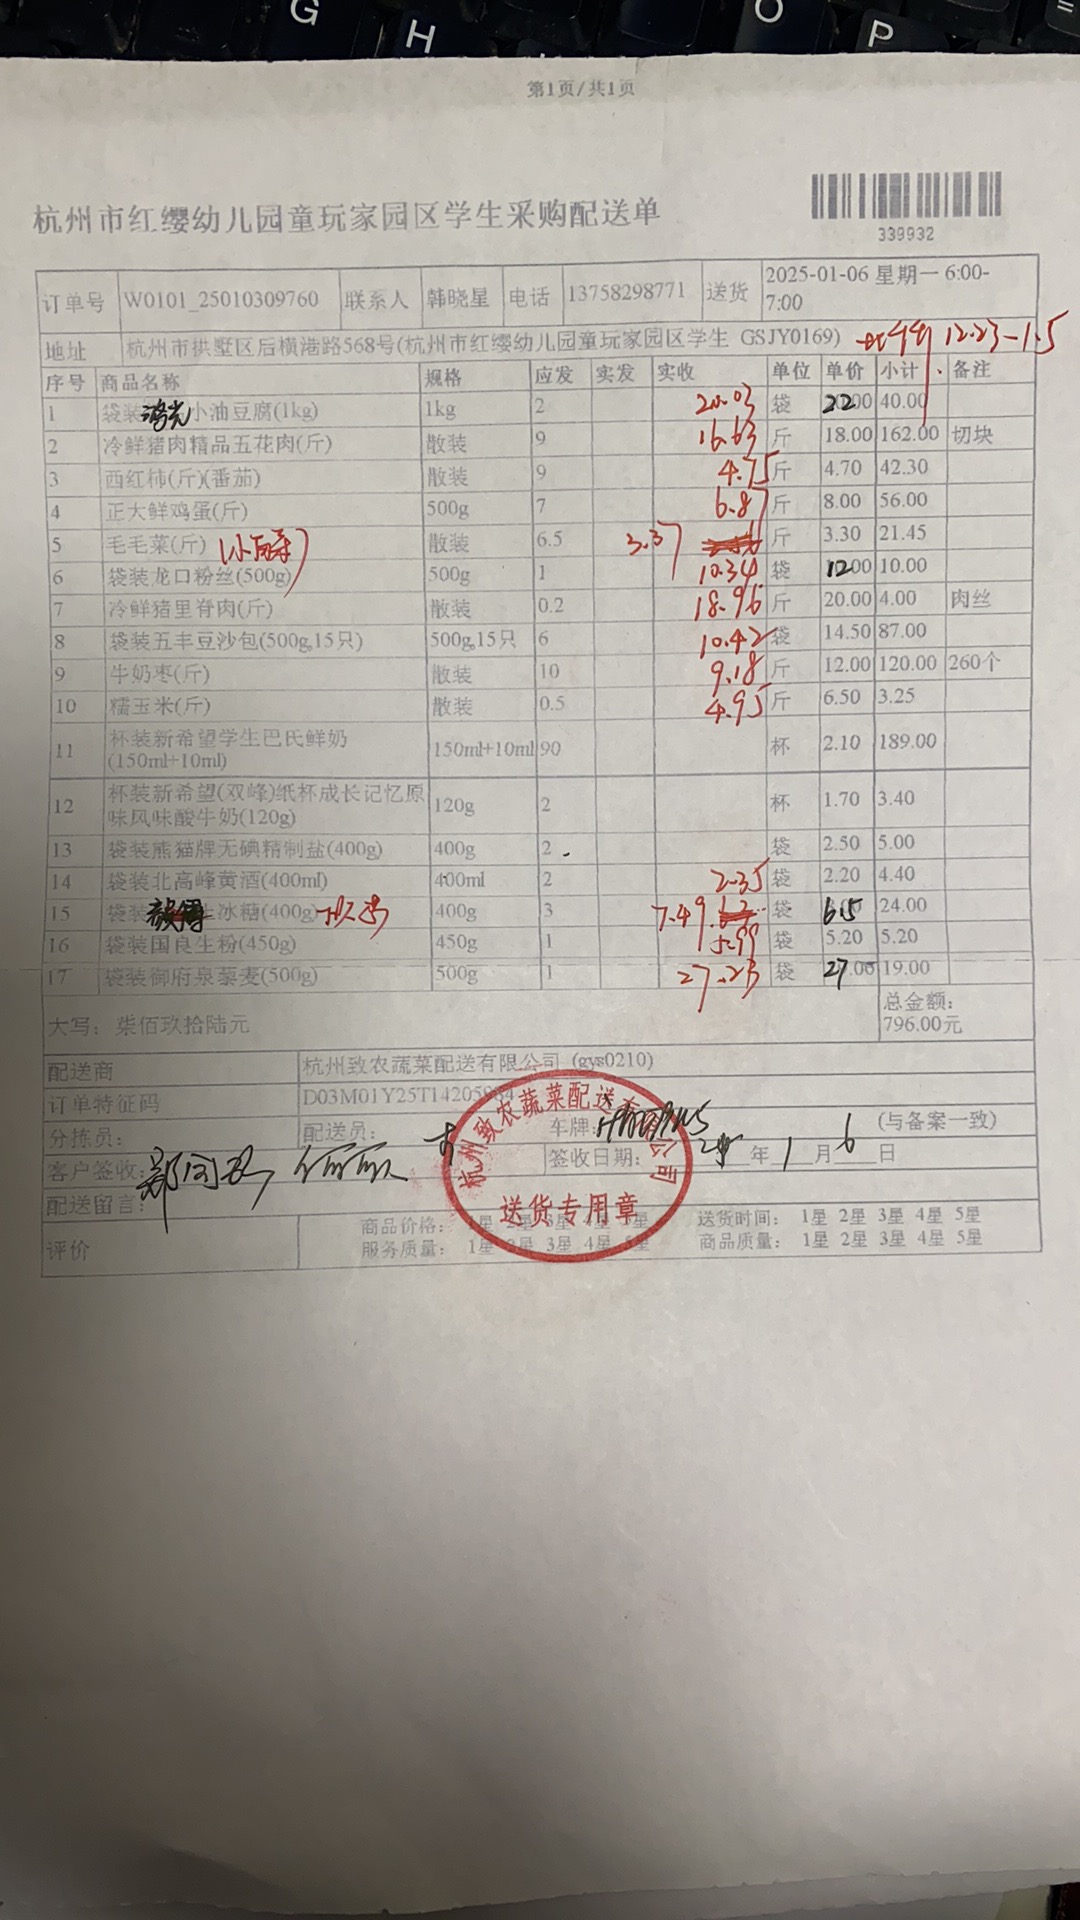 G H O P
第1页/共1页
杭州市红缨幼儿园童玩家园区学生采购配送单
339932
订单号 W0101_25010309760 联系人 韩晓星 电话 13758298771 送货 2025-01-06 星期一 6:00-7:00
地址 杭州市拱墅区后横港路568号(杭州市红缨幼儿园童玩家园区学生 GSJY0169) 12.23-1.5
序号 商品名称 规格 应发 实发 实收 单位 单价 小计 备注
1 袋装鸿光小油豆腐(1kg) 1kg 2 20.03 袋 22.00 40.00
2 冷鲜猪肉精品五花肉(斤) 散装 9 16.63 斤 18.00 162.00 切块
3 西红柿(斤)(番茄) 散装 9 4.75 斤 4.70 42.30
4 正大鲜鸡蛋(斤) 500g 7 6.87 斤 8.00 56.00
5 毛毛菜(斤) 散装 6.5 3.37 斤 3.30 21.45
6 袋装龙口粉丝(500g) 500g 1 10.34 袋 12.00 10.00
7 冷鲜猪里脊肉(斤) 散装 0.2 18.96 斤 20.00 4.00 肉丝
8 袋装五丰豆沙包(500g,15只) 500g,15只 6 10.42 袋 14.50 87.00
9 牛奶枣(斤) 散装 10 9.18 斤 12.00 120.00 260个
10 糯玉米(斤) 散装 0.5 4.95 斤 6.50 3.25
11 杯装新希望学生巴氏鲜奶(150ml+10ml) 150ml+10ml 90 杯 2.10 189.00
12 杯装新希望(双峰)纸杯成长记忆原味风味酸牛奶(120g) 120g 2 杯 1.70 3.40
13 袋装熊猫牌无碘精制盐(400g) 400g 2 袋 2.50 5.00
14 袋装北高峰黄酒(400ml) 400ml 2 2.35 袋 2.20 4.40
15 袋装冰糖(400g) 400g 3 7.49 袋 6.5 24.00
16 袋装国良生粉(450g) 450g 1 5.99 袋 5.20 5.20
17 袋装御府泉藜麦(500g) 500g 1 27.23 袋 27.00 19.00
大写: 柒佰玖拾陆元 总金额: 796.00元
配送商 杭州致农蔬菜配送有限公司 (gys0210)
订单特征码 D03M01Y25T14205
分拣员: 配送员: 车牌: (与备案一致)
客户签收: 签收日期: 25年1月6日
配送留言:
评价 商品价格: 1星 2星 3星 4星 5星 送货时间: 1星 2星 3星 4星 5星
服务质量: 1星 2星 3星 4星 5星 商品质量: 1星 2星 3星 4星 5星
杭州致农蔬菜配送有限公司
送货专用章